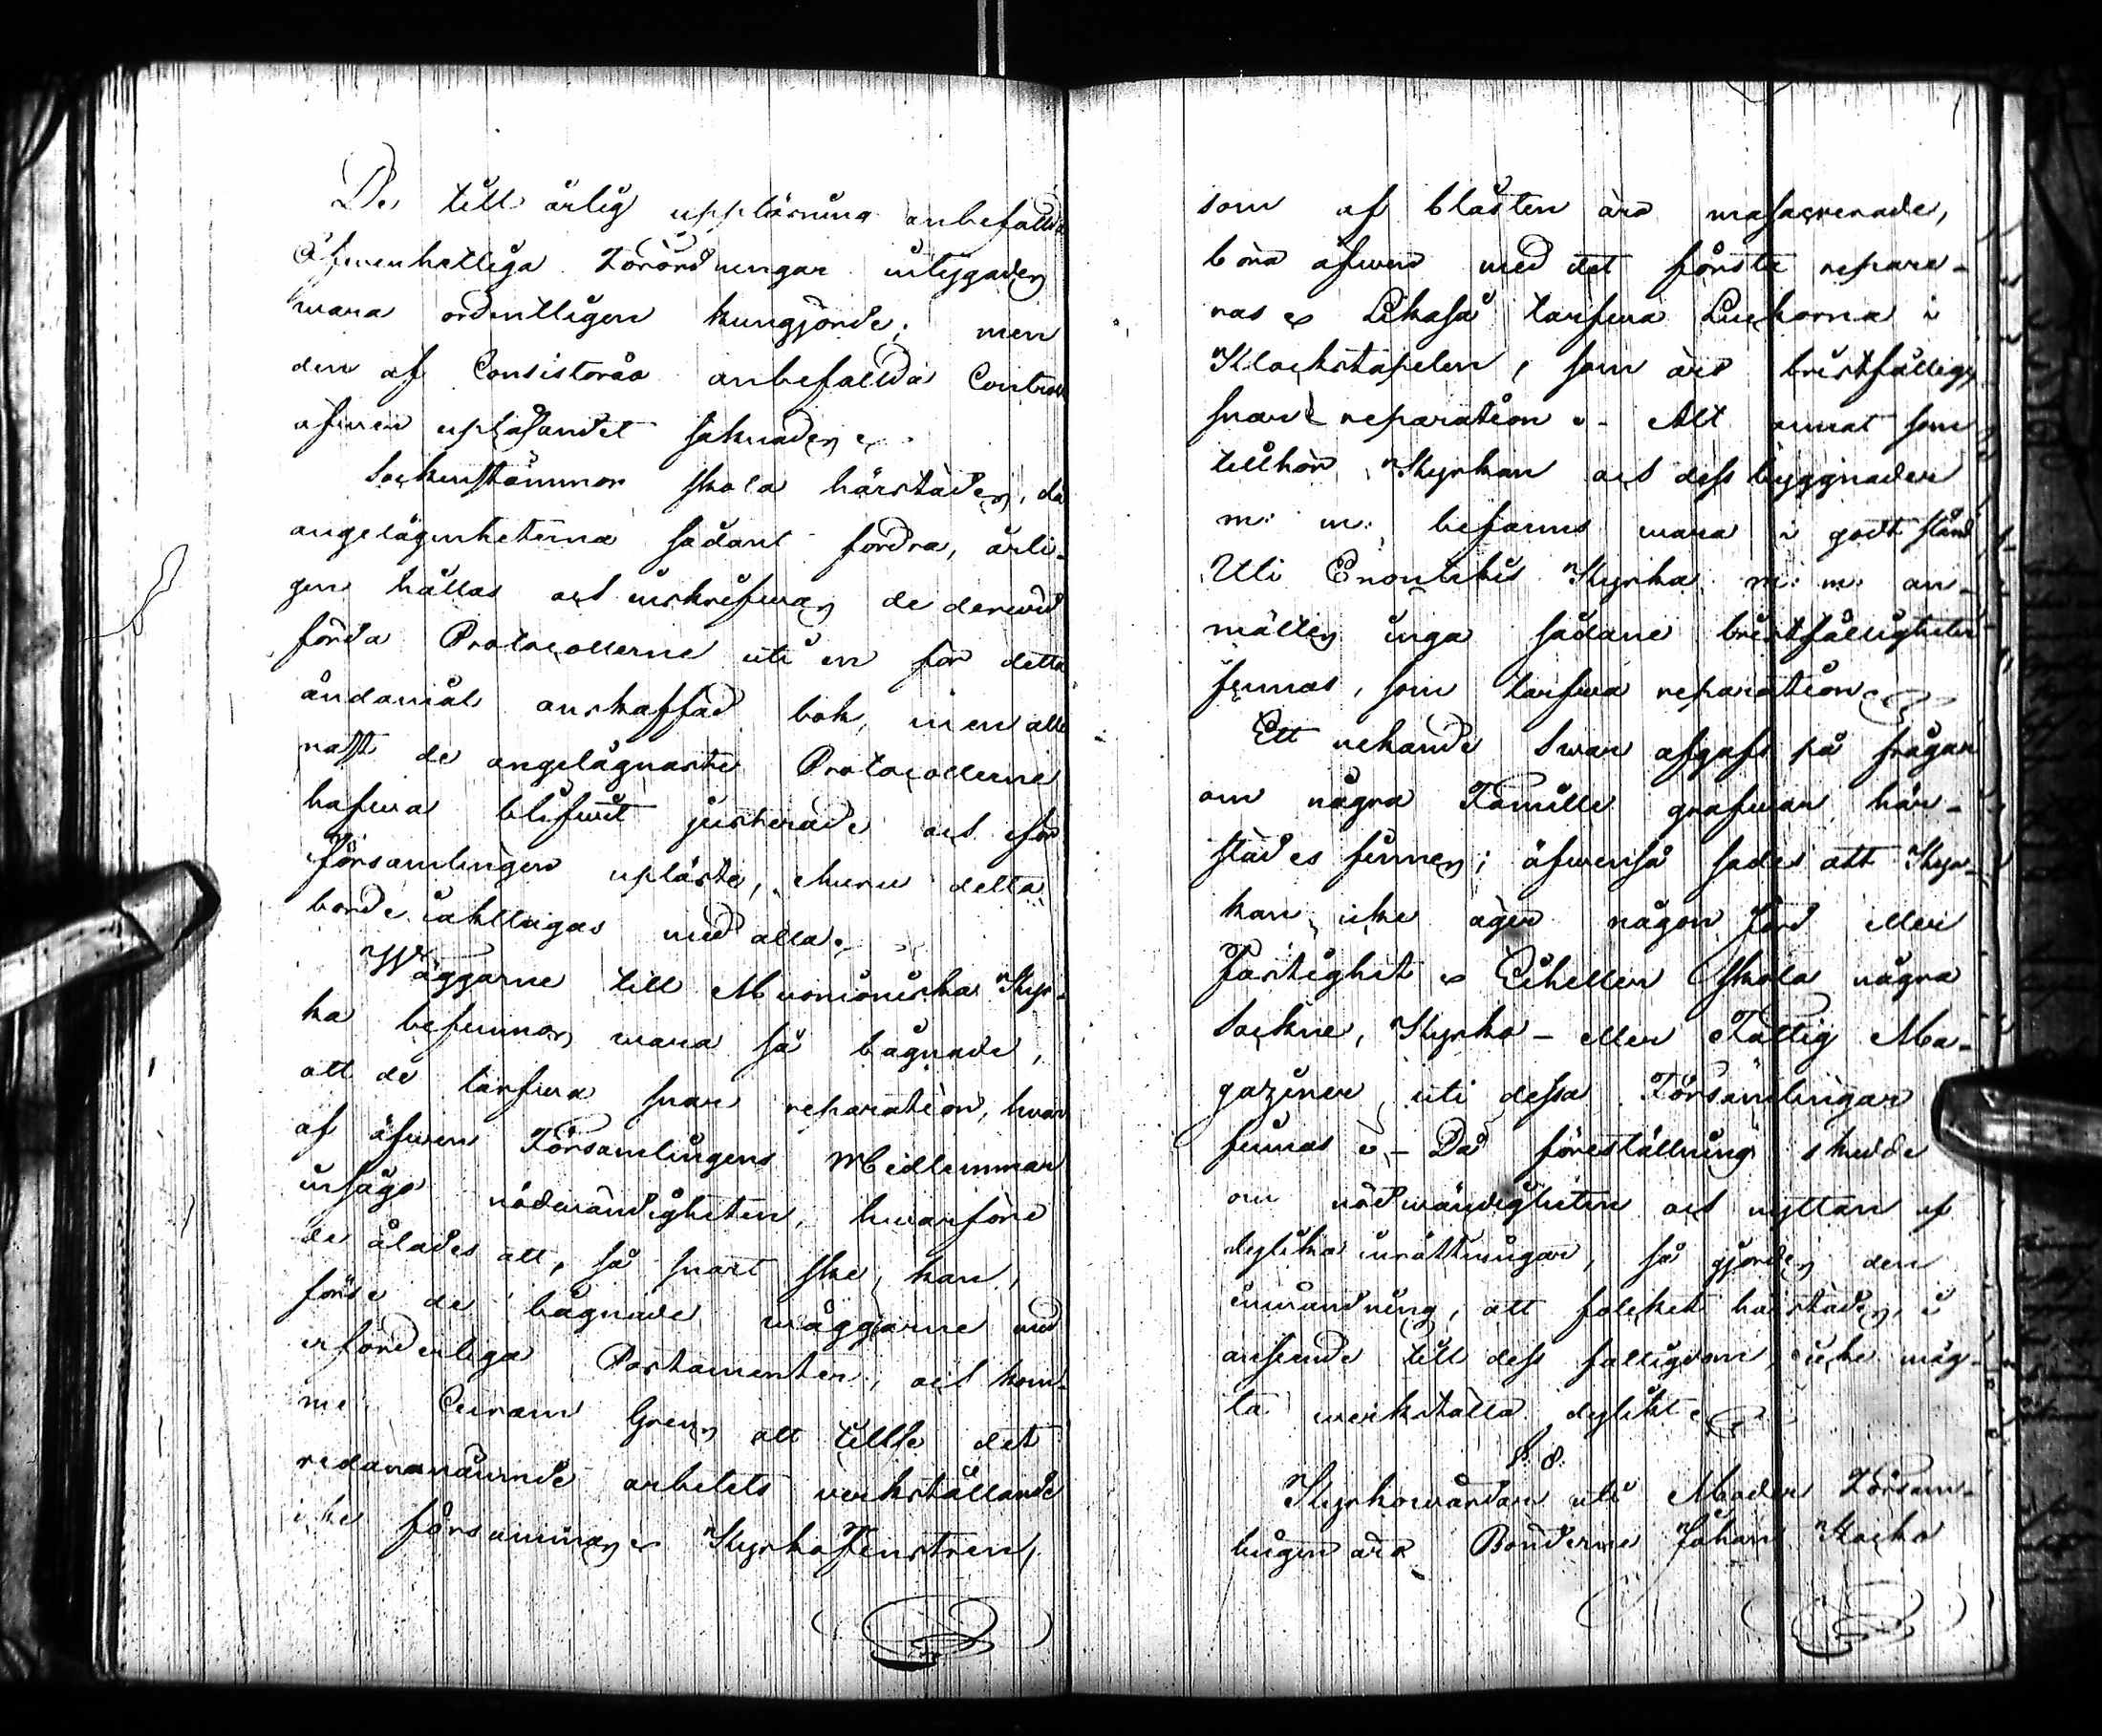 De till årlig uppläsning anbefallda
Öfwerhetliga Förordningar intygades
wara ordentligen kungjorde; men
den af Consistorio anbefallda Controll
öfwer upläsandet saknades.
Sockenstämmor skola härstädes, då
angelägenheterna sådant fordra, årli-
gen hållas och inskrifwas de derwid
förda Protocollerne uti en för detta
ändamål anskaffad bok, men alle
nast de angelägnaste Protocollerne
hafwa blifwit justerade och för
Församlingen upläste, ehuru detta
borde iakttagas med alla.
Wäggarne till Muonioniska Kyr-
ka befunnos wara så bågnade,
att de tarfwa snar reparation, hwar
af äfwen Församlingens Medlemmar
insågo nödwändigheten, hwarföre
de ålades att, så snart ske kan,
förse de bågnade wäggarne med
erforderliga Postamenter, och kom-
me att tillse det
redannämnde arbetets werkställande
icke försummas. Kyrkofenstren,
som af blåsten äro massacrerade,
böra äfwen med det första repare-
ras. Likaså tarfwa Luckorna i
Klockstapelen, som äro bristfällige
snar reparation. - Alt annat som
tillhör Kyrkan och dess byggnader
m: m: befanns wara i godt stånd
Uti Enontekis Kyrka m: m: an-
mältes inga sådane bristfälligheter
finnas, som tarfwa reparation.
Ett nekande Swar afgafs på frågan
om några Famille grafwar här-
städes finnes; äfwenså sades att Kyr-
kan icke äger någon jord eller
Fastighet. Eiheller skola några
Sockne, Kyrko- eller Fattig Ma-
gaziner uti dessa Församlingar
finnas. - Då föreställning skedde
om nödwändigheten och nyttan af
dylika inrättningar, så gjordes den
inwändning, att folcket härstädes, i
anseende till dess fattigdom, icke mäg-
ta werkställa dylikt.
§. 8.
Kyrkowärdar uti Moder Församl-
lingen äro Bönderne Johan